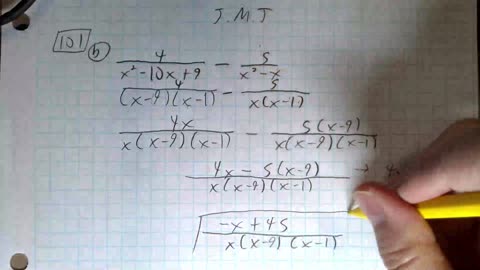 J.M.J
101 b) 4/(x²-10x+9) - 5/(x²-x)
4/((x-9)(x-1)) - 5/(x(x-1))
4x/(x(x-9)(x-1)) - 5(x-9)/(x(x-9)(x-1))
(4x - 5(x-9))/(x(x-9)(x-1)) → 4x
(-x+45)/(x(x-9)(x-1))